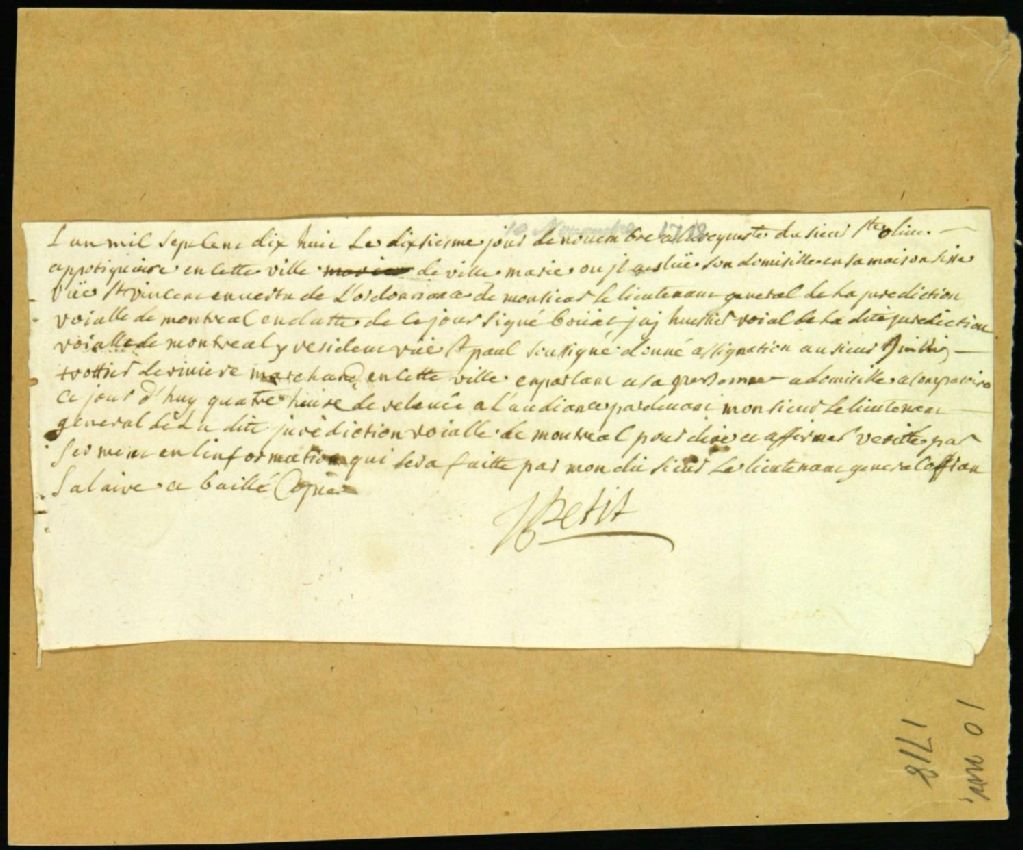 10 Novembre 1718
L'an mil sept cent dix huit Le dixsiesme jour de nouembre a la requeste du sieur Ste oliue
appotiquiere en cette ville de ville marie ou jl eslüe son domisille en sa maison sise
rüe St vincent en vertu de L'ordonnance de monsieur le lieutenant general de La jurediction
roialle de montreal en datte de ce jour signé Boüat j'aj huissier roial de La dite juredition
roialle de montreal y resident rüe St paul soussigné donné assignation au sieur
trottier deriuiere marchand en cette ville en parlant a sa personne a domisille a comparoire
ce jour d'huy quatre heure de releuée a L'audiance pardeuant monsieur le lieutenant
general de La dite juridiction roialle de montreal pour dire et affirmer veritté par
serment en linformation qui sera faitte par mon dit sieur le lieutenant general offrant
salaire et baillé Copie
Petit
1718
10 nov.